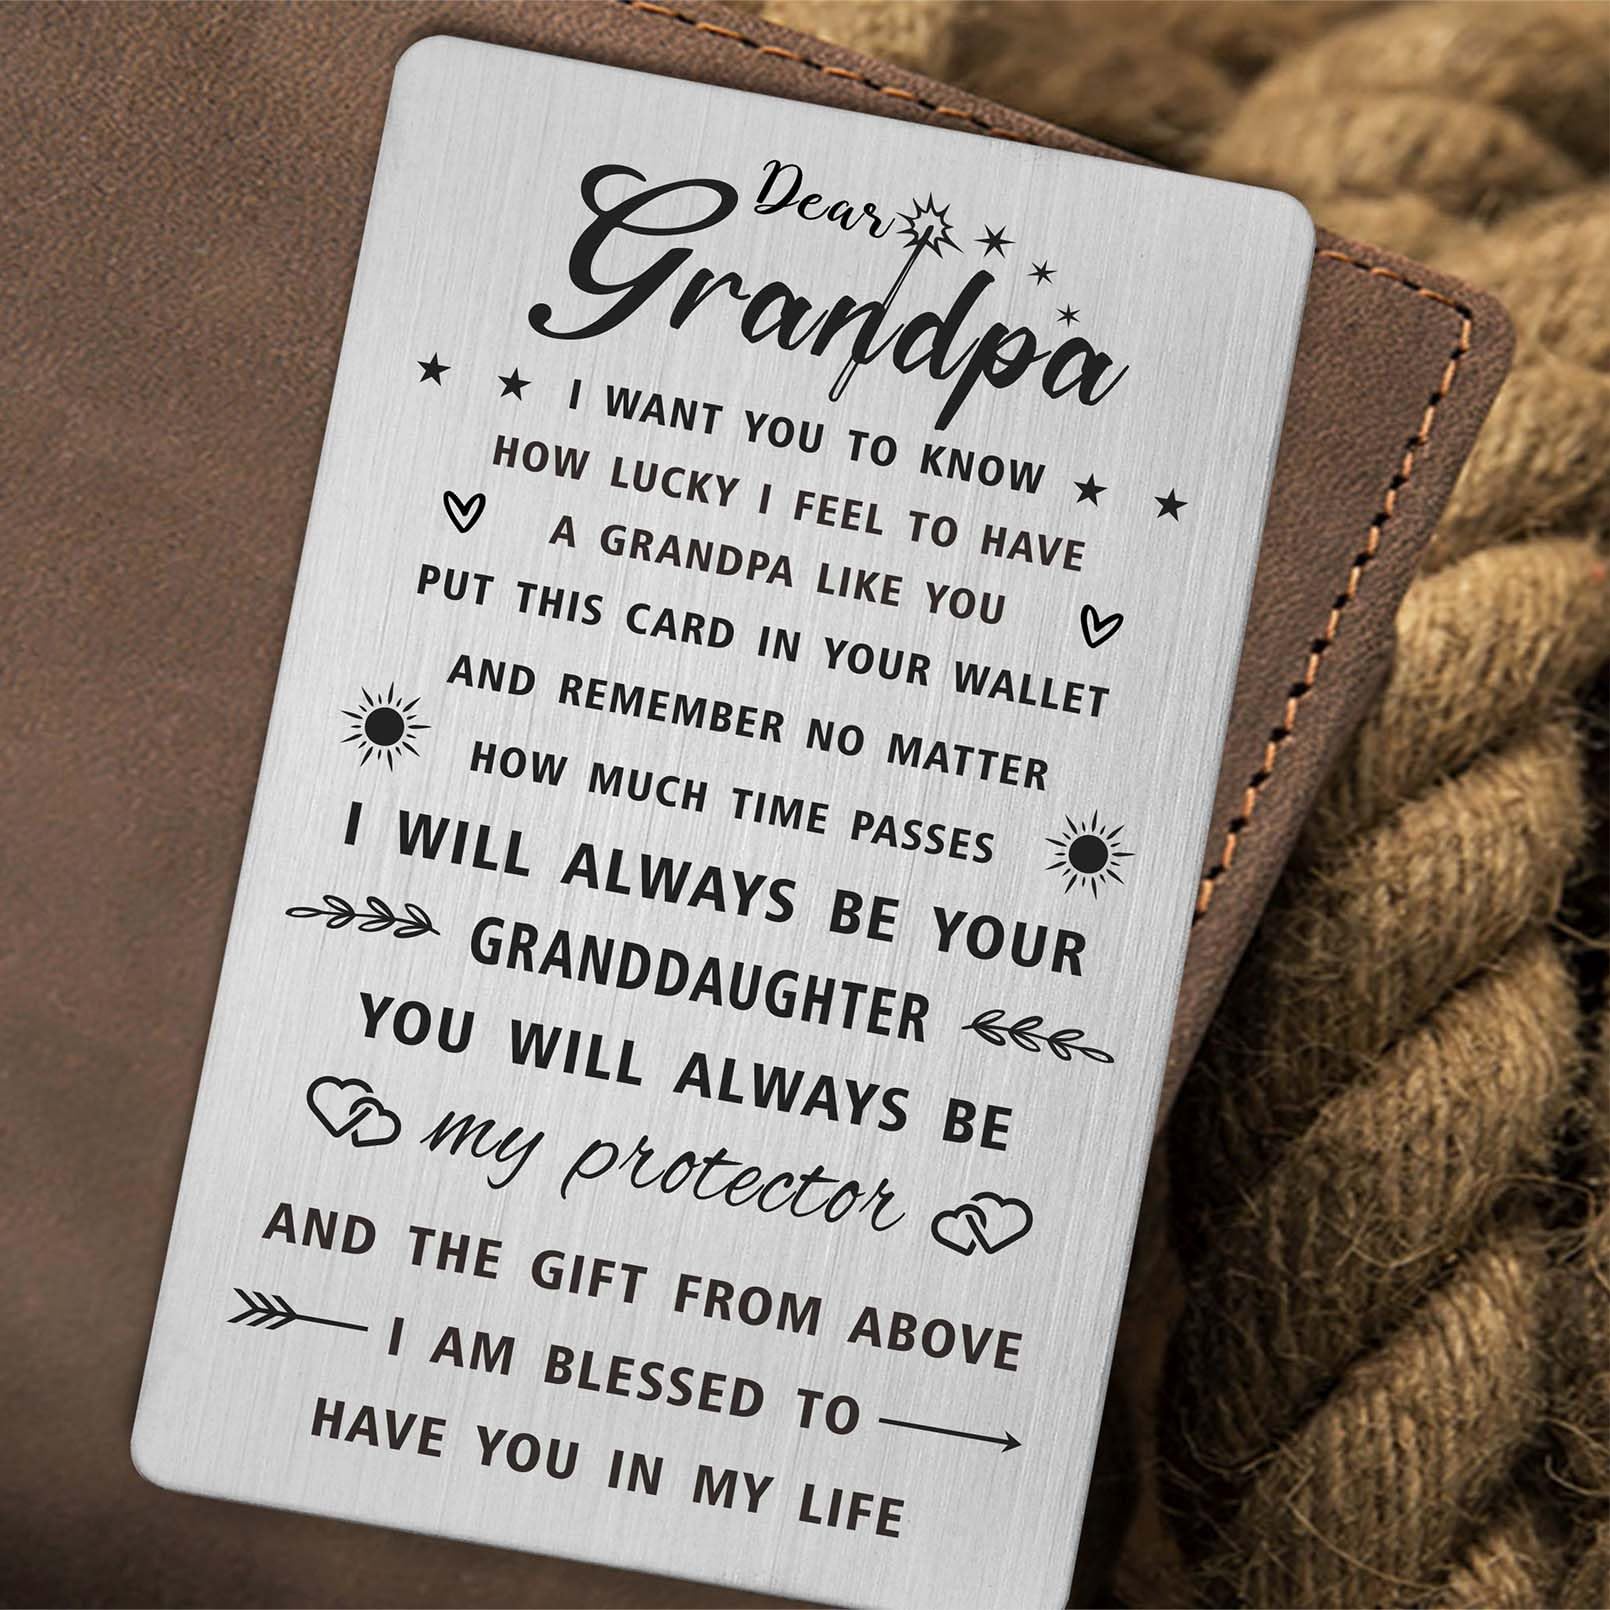 Dear
Grandpa
I WANT YOU TO KNOW
HOW LUCKY I FEEL TO HAVE
A GRANDPA LIKE YOU
PUT THIS CARD IN YOUR WALLET
AND REMEMBER NO MATTER
HOW MUCH TIME PASSES
I WILL ALWAYS BE YOUR
GRANDDAUGHTER
YOU WILL ALWAYS BE
my protector
AND THE GIFT FROM ABOVE
I AM BLESSED TO
HAVE YOU IN MY LIFE